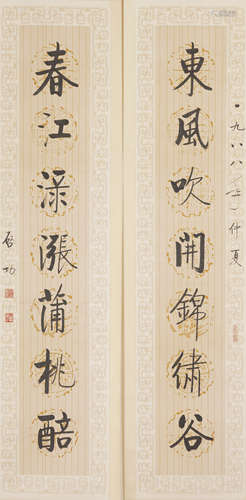 一九八八仲夏
東風吹開錦繡谷
春江渌漲蒲桃醅
启功